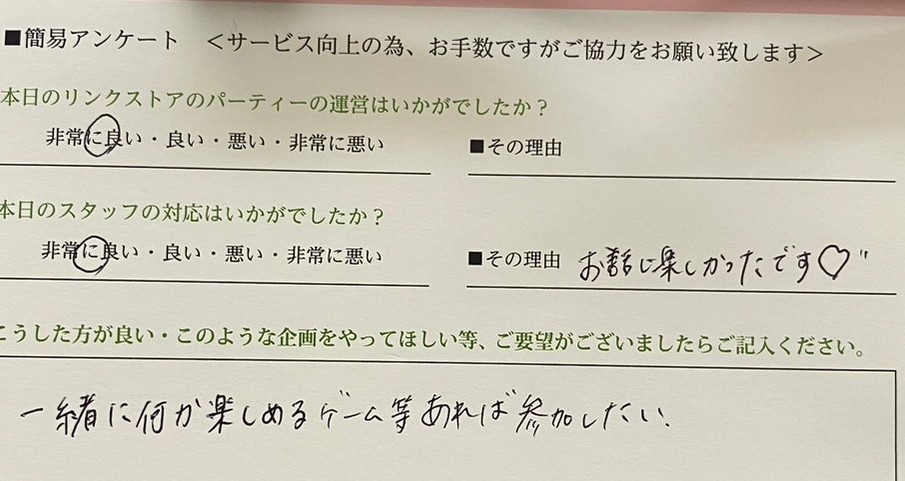 ■簡易アンケート <サービス向上の為、お手数ですがご協力をお願い致します>
本日のリンクストアのパーティーの運営はいかがでしたか?
非常に良い・良い・悪い・非常に悪い ■その理由
本日のスタッフの対応はいかがでしたか?
非常に良い・良い・悪い・非常に悪い ■その理由 お話し楽しかったです♡"
こうした方が良い・このような企画をやってほしい等、ご要望がございましたらご記入ください。
一緒に何か楽しめるゲーム等あれば参加したい.